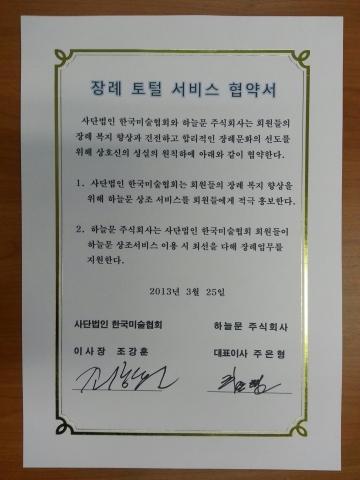 장례 토털 서비스 협약서
사단법인 한국미술협회와 하늘문 주식회사는 회원들의
장례 복지 향상과 건전하고 합리적인 장례문화의 선도를
위해 상호신의 성실의 원칙하에 아래와 같이 협약한다.
1. 사단법인 한국미술협회는 회원들의 장례 복지 향상을
위해 하늘문 상조 서비스를 회원들에게 적극 홍보한다.
2. 하늘문 주식회사는 사단법인 한국미술협회 회원들이
하늘문 상조서비스 이용 시 최선을 다해 장례업무를
지원한다.
2013년 3월 25일
사단법인 한국미술협회
하늘문 주식회사
이 사 장 조 강 훈
대표이사 주 은 형